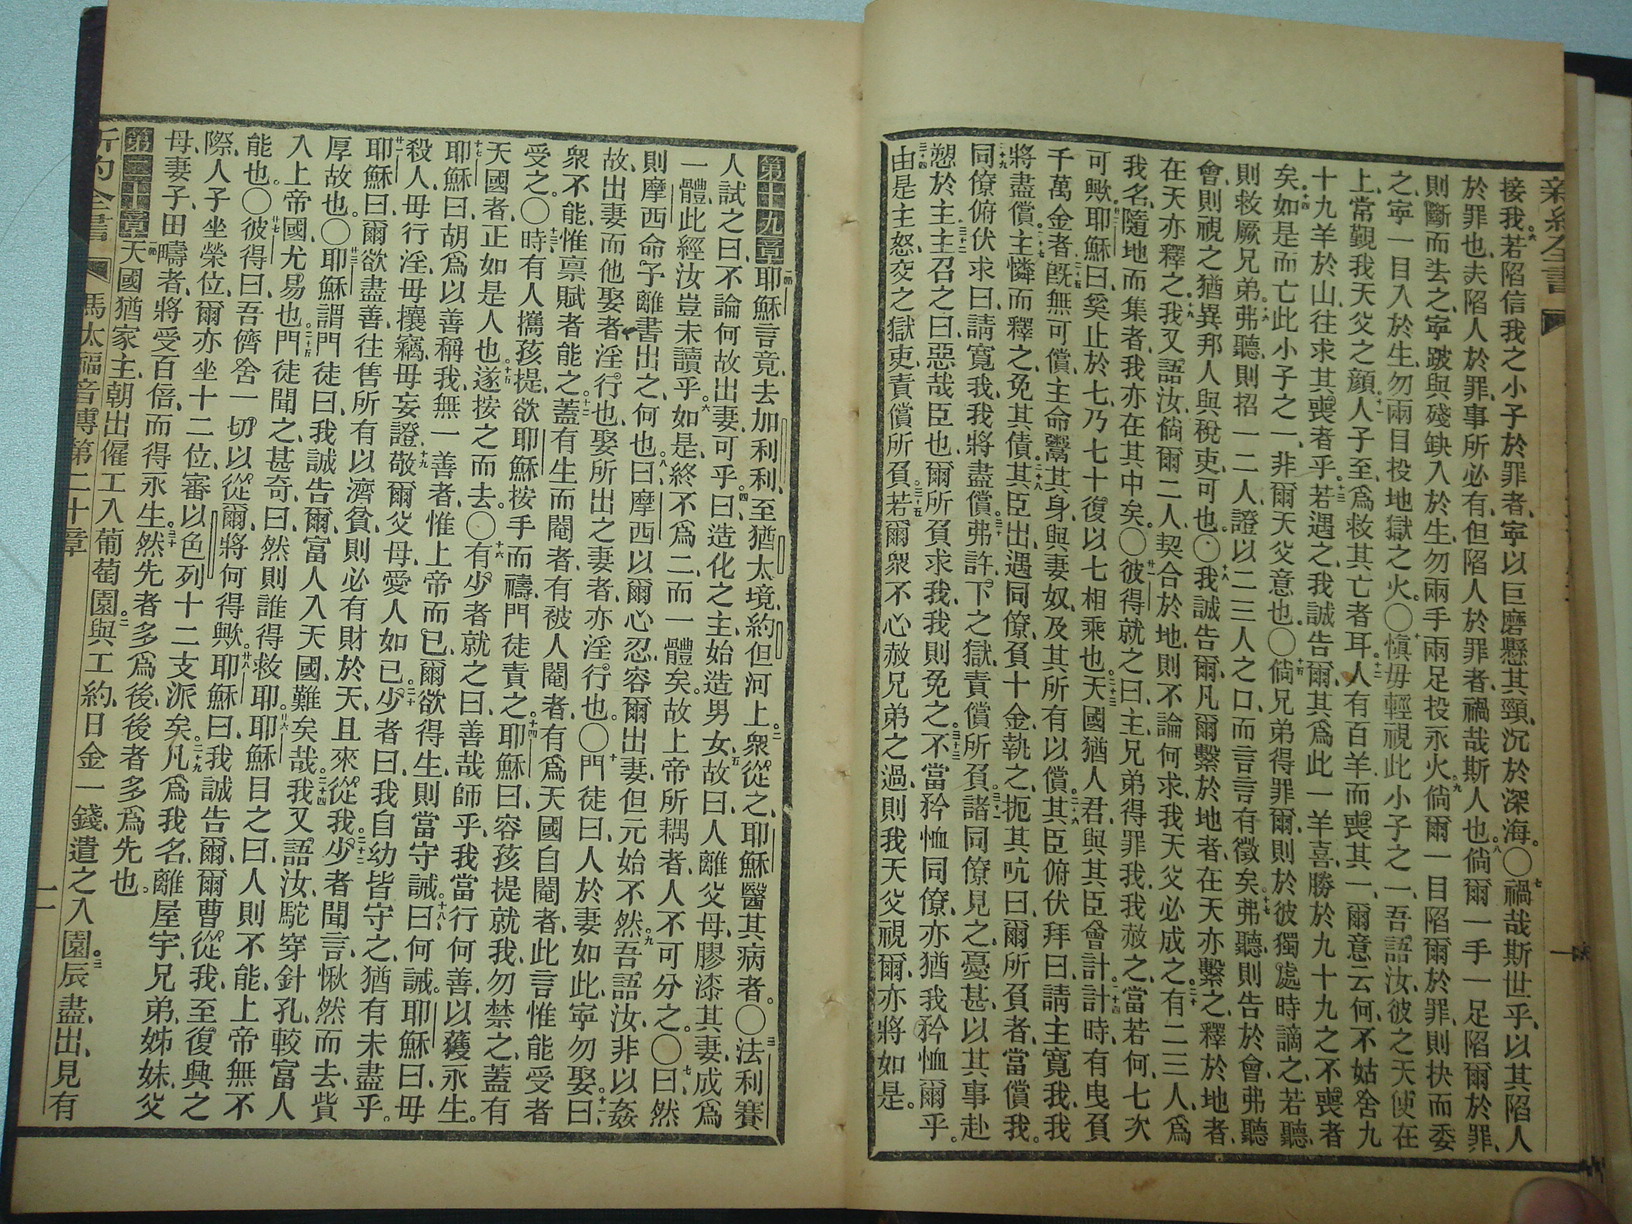 新約全書
接我、若陷信我之小子於罪者、寧以巨磨懸其頸、沉於深海。〇禍哉斯世乎、以其陷人
於罪也、夫陷人於罪、事所必有、但陷人於罪者、禍哉斯人也。倘爾一手一足、陷爾於罪、
則斷而去之、寧跛與殘缺入於生、勿兩手兩足投永火、倘爾一目陷爾於罪、則抉而委
之、寧一目入於生、勿兩目投地獄之火。〇愼毋輕視此小子之一、吾語汝、彼之天使在
上、常覲我天父之顏、人子至、爲救其亡者耳、人有百羊而喪其一、爾意云何、不姑舍九
十九羊、於山往求其喪者乎。若遇之、我誠告爾、其爲此一羊喜、勝於九十九之不喪者
矣。如是而亡此小子之一、非爾天父意也。〇倘兄弟得罪爾、則於彼獨處時謫之、若聽、
則救厥兄弟、弗聽、則招一二人、證以二三人之口、而言言有徵矣。弗聽、則告於會、弗聽
會、則視之猶異邦人與稅吏可也。〇我誠告爾、凡爾繫於地者、在天亦繫之、釋於地者、
在天亦釋之、我又語汝、倘爾二人、契合於地、則不論何求、我天父必成之、有二三人、爲
我名、隨地而集者、我亦在其中矣。〇彼得就之曰、主、兄弟得罪我、我赦之、當若何、七次
可歟、耶穌曰、奚止於七、乃七十復以七相乘也、天國猶人君、與其臣會計、計時、有曳負
千萬金者、旣無可償、主命鬻其身、與妻奴、及其所有以償、其臣俯伏拜曰、請主寬我、我
將盡償、主憐而釋之、免其債、其臣出、遇同僚負十金、執之、扼其吭曰、爾所負者、當償我。
同僚俯伏求曰、請寬我、我將盡償。弗許、下之獄、責償所負、諸同僚見之、憂甚、以其事赴
愬於主、主召之曰、惡哉臣也、爾所負求我、我則免之、不當矜恤同僚、亦猶我矜恤爾乎。
由是主怒、交之獄吏、責償所負。若爾衆不心赦兄弟之過、則我天父視爾、亦將如是。
第十九章耶穌言竟、去加利利、至猶太境、約但河上、衆從之、耶穌醫其病者。〇法利賽
人試之曰、不論何故出妻、可乎。曰、造化之主、始造男女、故曰、人離父母、膠漆其妻、成爲
一體、此經汝豈未讀乎。如是、終不爲二、而一體矣、故上帝所耦者、人不可分之。〇曰、然
則摩西命予離書出之、何也。曰、摩西以爾心忍、容爾出妻、但元始不然、吾語汝、非以姦
故、出妻而他娶者、淫行也、娶所出之妻者、亦淫行也。〇門徒曰、人於妻如此、寧勿娶、曰
衆不能、惟稟賦者能之。蓋有生而閹者、有被人閹者、有爲天國自閹者、此言惟能受者
受之。〇時有人攜孩提、欲耶穌按手而禱、門徒責之、耶穌曰、容孩提就我、勿禁之、蓋有
天國者、正如是人也、遂按之而去。〇有少者就之曰、善哉師乎、我當行何善、以獲永生。
耶穌曰、胡爲以善稱我、無一善者、惟上帝而已、爾欲得生、則當守誡、曰、何誡、耶穌曰、毋
殺人、毋行淫、毋攘竊、毋妄證、敬爾父母、愛人如己、少者曰、我自幼皆守之、猶有未盡乎。
耶穌曰、爾欲盡善、往售所有以濟貧、則必有財於天、且來從我、少者聞言、愀然而去、貲
厚故也。〇耶穌謂門徒曰、我誠告爾、富人入天國、難矣哉、我又語汝、駝穿針孔、較富人
入上帝國尤易也、門徒聞之甚奇、曰、然則誰得救耶、耶穌目之曰、人則不能、上帝無不
能也。〇彼得曰、吾儕舍一切以從爾、將何得歟、耶穌曰、我誠告爾、爾曹從我、至復興之
際、人子坐榮位、爾亦坐十二位、審以色列十二支派矣。凡爲我名、離屋宇、兄弟、姊妹、父
母、妻子、田疇者、將受百倍、而得永生、然先者多爲後、後者多爲先也。
第二十章天國猶家主、朝出僱工入葡萄園、與工約、日金一錢、遣之入園。辰盡出、見有
新約全書 馬太福音傳第二十章 十一